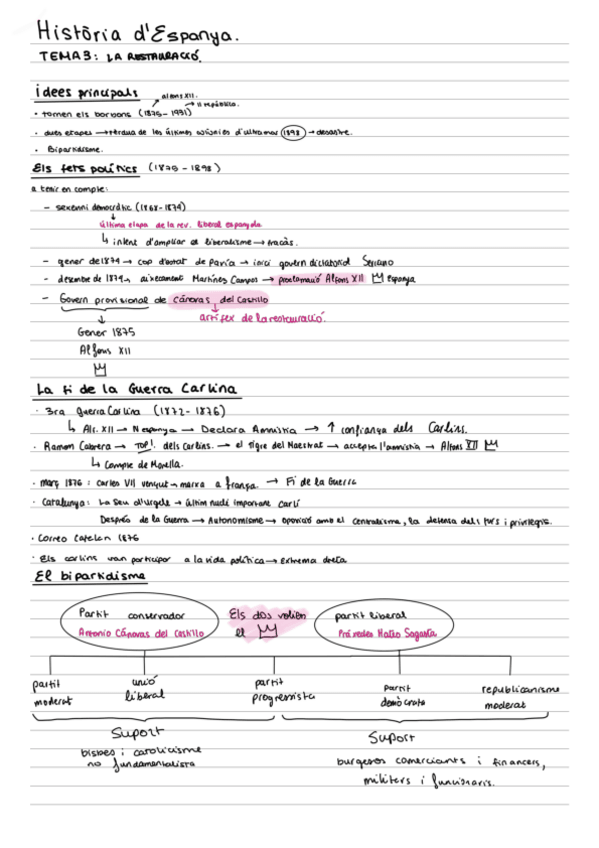 Història d'Espanya.
TEMA 3: LA RESTAURACIÓ.
idees principals
alfons XII.
→ II república.
· tornen els borbons (1875-1931)
· dues etapes → pèrdua de les últimes colònies d'ultramar 1898 → desastre.
· Bipartidisme.
Els fets polítics (1875-1898)
a tenir en compte:
- sexenni democràtic (1868-1874)
↓
última etapa de la rev. liberal espanyola
↳ intent d'ampliar el liberalisme → fracàs.
- gener de 1874 → cop d'estat de Pavía → inici govern dictatorial Serrano
- desembre de 1874 → aixecament Martínez Campos → proclamació Alfons XII Espanya
- Govern provisional de Cánovas del Castillo
↓ artífex de la restauració.
Gener 1875
Alfons XII
La fi de la Guerra Carlina
· 3ra guerra Carlina (1872-1876)
↳ Alf. XII → N espanya → Declara Amnistia → ↑ confiança dels Carlins.
· Ramon Cabrera → TOP! dels Carlins. → el tigre del Maestrat → accepta l'amnistia → Alfons XII
↳ Compte de Morella.
· març 1876: carles VII vençut → marxa a frança. → Fi de la Guerra
· Catalunya: La Seu d'Urgell → últim nucli important carlí
Després de la Guerra → Autonomisme → oposició amb el centralisme, la defensa dels furs i privilegis.
· Correo Catalan 1876
· Els carlins van participar a la vida política → Extrema dreta
El bipartidisme
Partit conservador
Antonio Cánovas del Castillo
Els dos volien
el
partit liberal
Práxedes Mateo Sagasta
partit
moderat
unió
liberal
partit
progressista
Partit
demòcrata
republicanisme
moderat
Suport
bisbes i catolicisme
no fundamentalista
Suport
burgesos comerciants i financers,
militars i funcionaris.